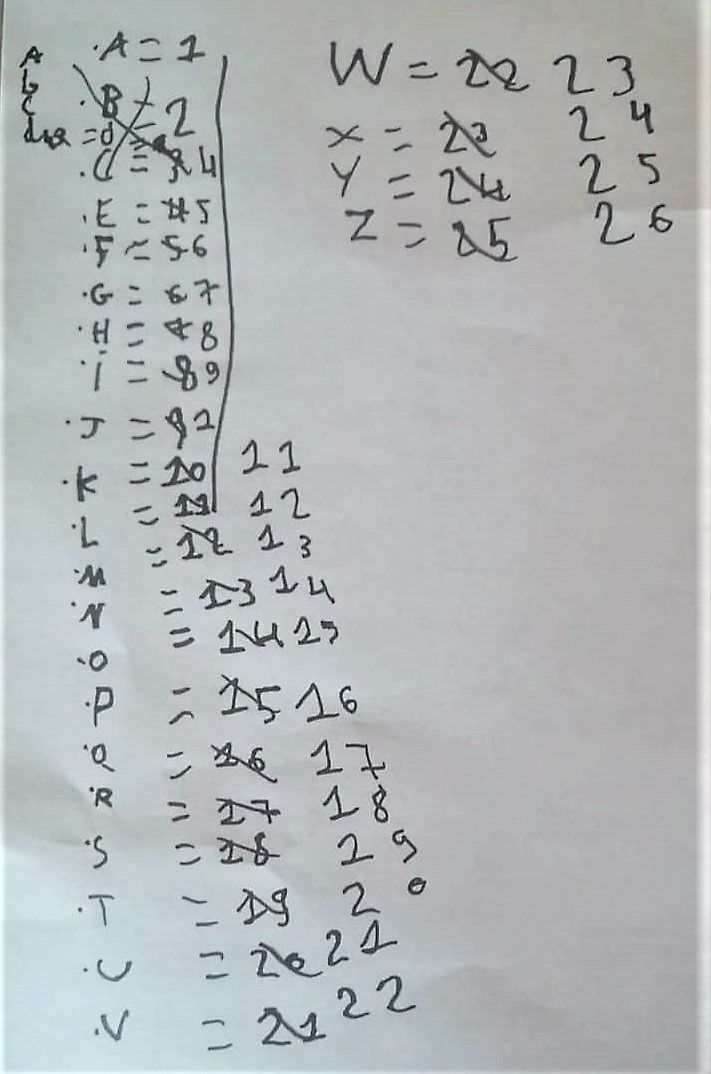 A
b
C
·A = 1
·B = 2
= d =
·C = 3 4
·E = 4 5
·F = 5 6
·G = 6 7
·H = 7 8
·i = 8 9
·J = 9
·K = 10 11
·L = 11 12
·M = 12 13
·N = 13 14
·O = 14 15
·P = 15 16
·Q = 16 17
·R = 17 18
·S = 18 29
·T = 19 20
·U = 20 21
·V = 21 22
W = 22 23
X = 23 24
Y = 24 25
Z = 25 26